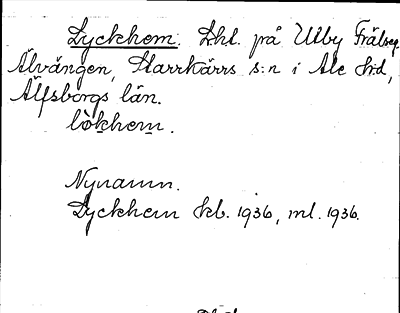 Lyckhem. Lht. på Utby Frälseg.
Älvängen, Starrkärrs s:n i Ale hd,
Älfsborgs län.
lökhem.
Nynamn.
Lyckhem Skb. 1936, ml. 1936.